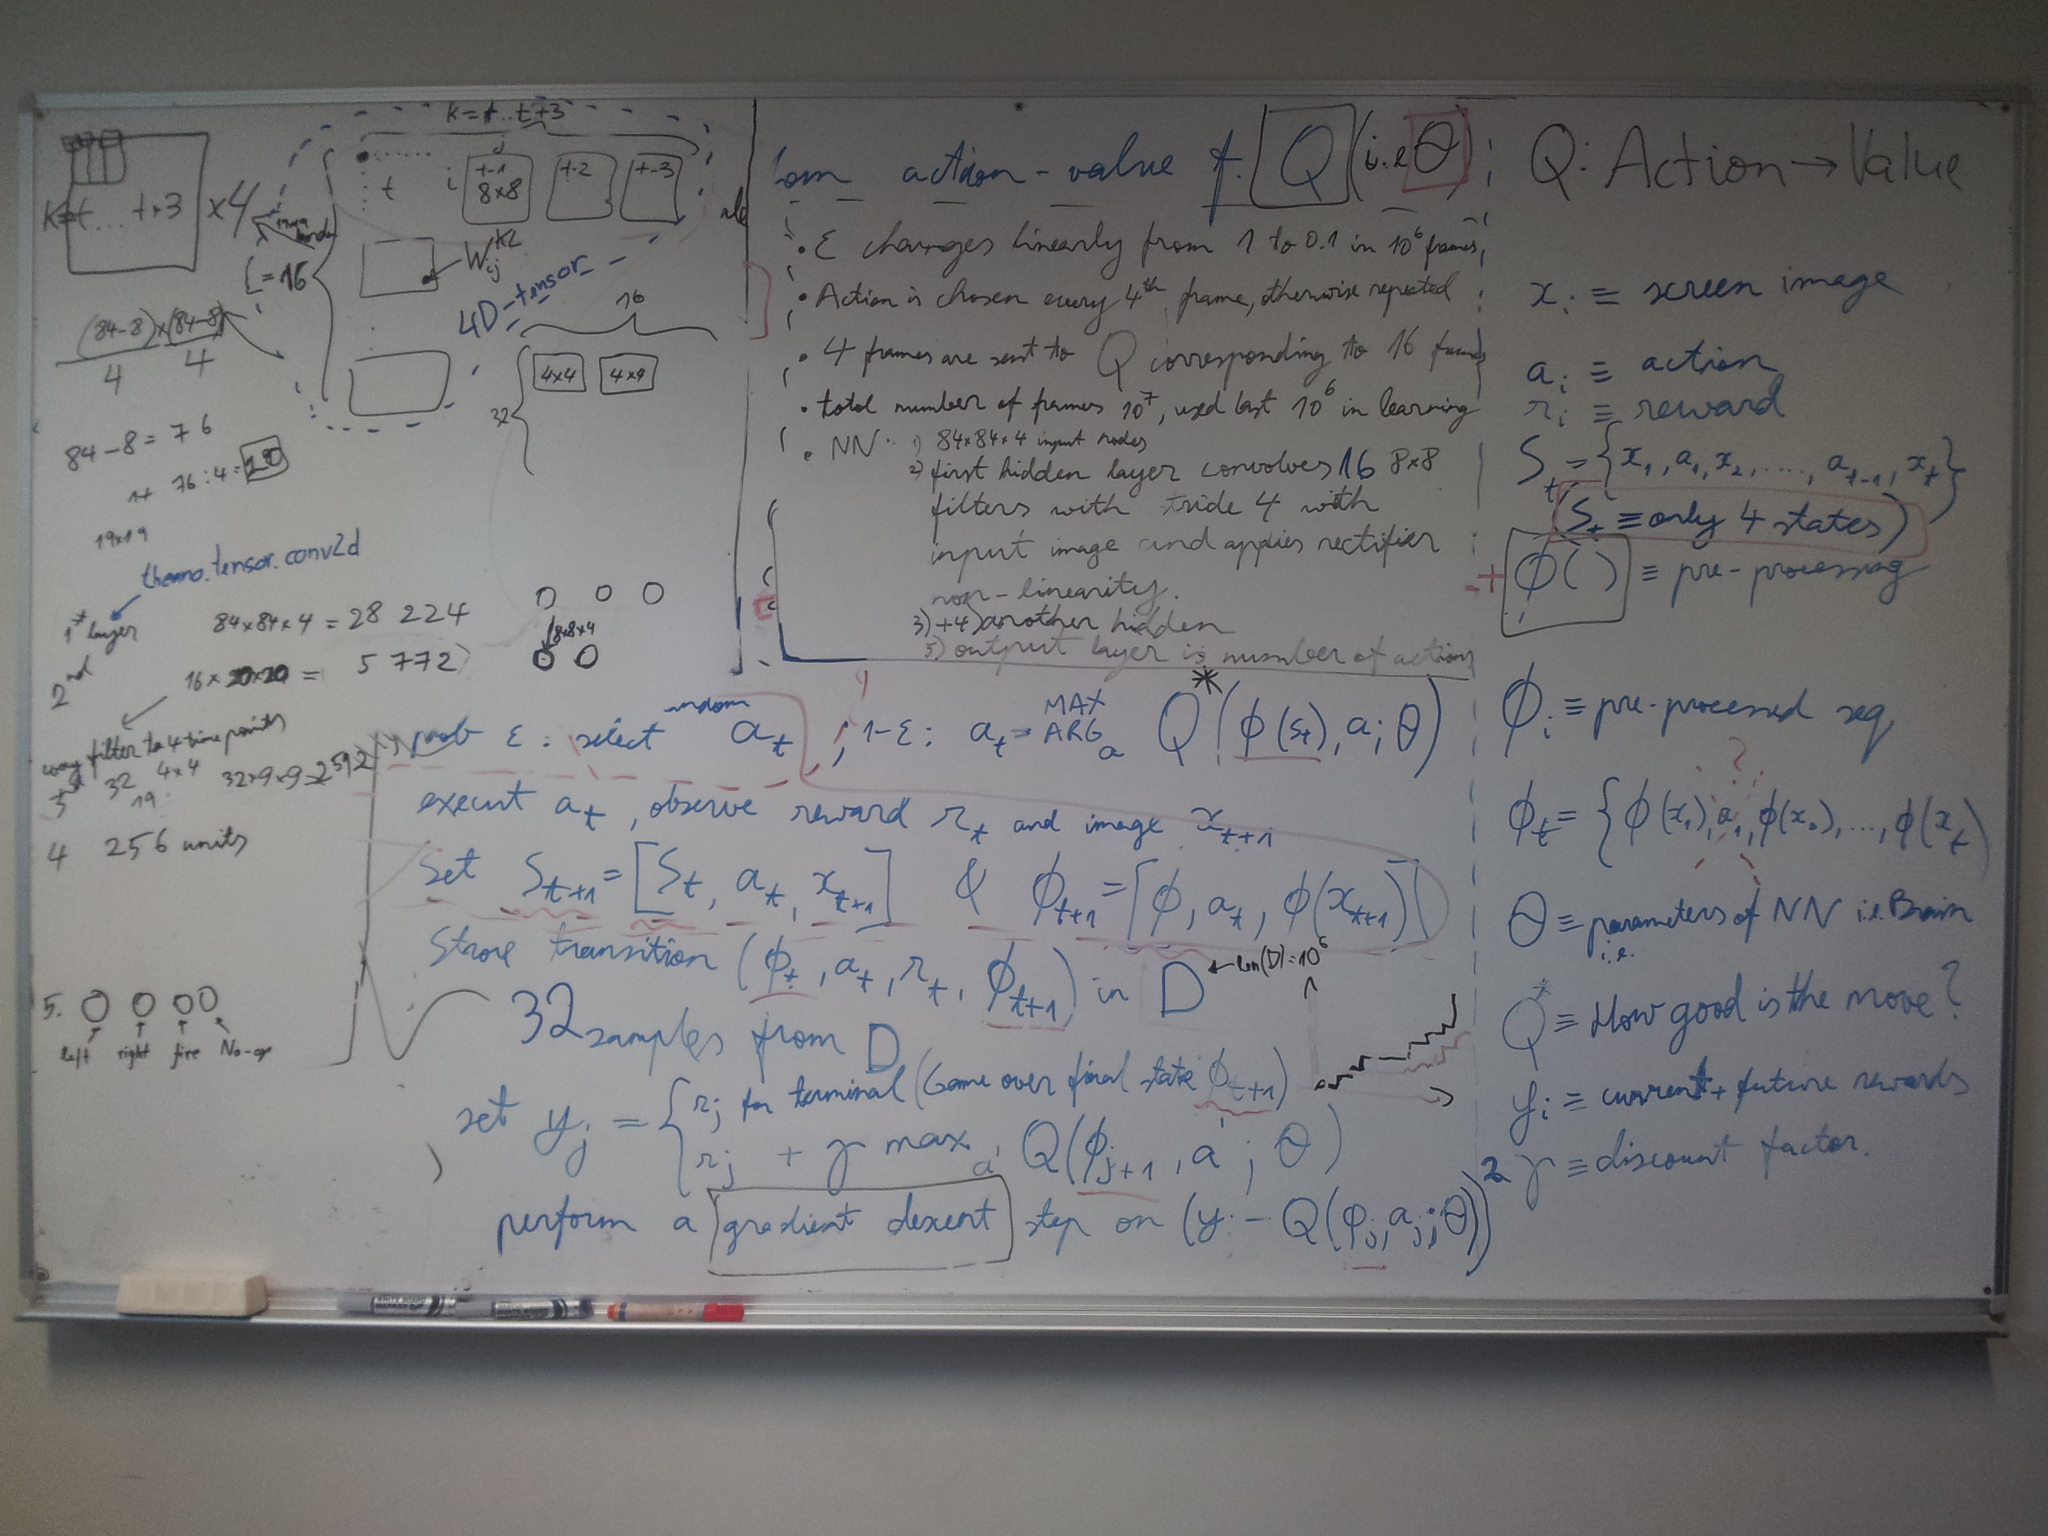 K=t...t+3
K=t...t+3 ×4
t i j
t-1
8×8
t-2
t-3
L=16
W_ij^KL
4D-tensor
(84-8)×(84-8)
4 4
84-8=76
1+ 76:4=20
19×19
16
32
4×4 4×4
theano.tensor.conv2d
1st layer 84×84×4=28 224
2nd 16×20×20= 5 772
8×8×4
filter to 4 time points
3 32 4×4 32×9×9=2592
19
4 256 units
5.
left right fire No-op
action-value f. Q (i.e θ)
• ε changes linearly from 1 to 0.1 in 10^6 frames,
• Action is chosen every 4th frame, otherwise repeated
• 4 frames are sent to Q corresponding to 16 frames
• total number of frames 10^7, used last 10^6 in learning
• NN: 1) 84×84×4 input nodes
2) first hidden layer convolves 16 8×8
filters with tride 4 with
input image and applies rectifier
non-linearity.
3)+4) another hidden
5) output layer is number of actions
prob ε: select random a_t ; 1-ε: a_t = MAX ARG_a Q*(ϕ(s_t), a; θ)
execut a_t, observe reward r_t and image x_t+1
Set S_t+1=[S_t, a_t, x_t+1] & ϕ_t+1=[ϕ, a_t, ϕ(x_t+1)]
Store transition (ϕ_t, a_t, r_t, ϕ_t+1) in D ← len(D)=10^6
32 samples from D
set y_j = { r_j for terminal (Game over final state ϕ_t+1)
r_j + γ max_a' Q(ϕ_j+1, a'; θ)
perform a gradient descent step on (y_j - Q(ϕ_j, a_j; θ))^2
Q: Action → Value
x_i ≡ screen image
a_i ≡ action
r_i ≡ reward
S_t={x_1, a_1, x_2, ...., a_t-1, x_t}
(S_t ≡ only 4 states)
+ ϕ( ) ≡ pre-processing
ϕ_i ≡ pre-processed seq
?
ϕ_t={ϕ(x_1), a_1, ϕ(x_2), ..., ϕ(x_t)
θ ≡ parameters of NN i.e. Brain
i.e.
Q* ≡ How good is the move?
y_i ≡ current + future rewards
γ ≡ discount factor.